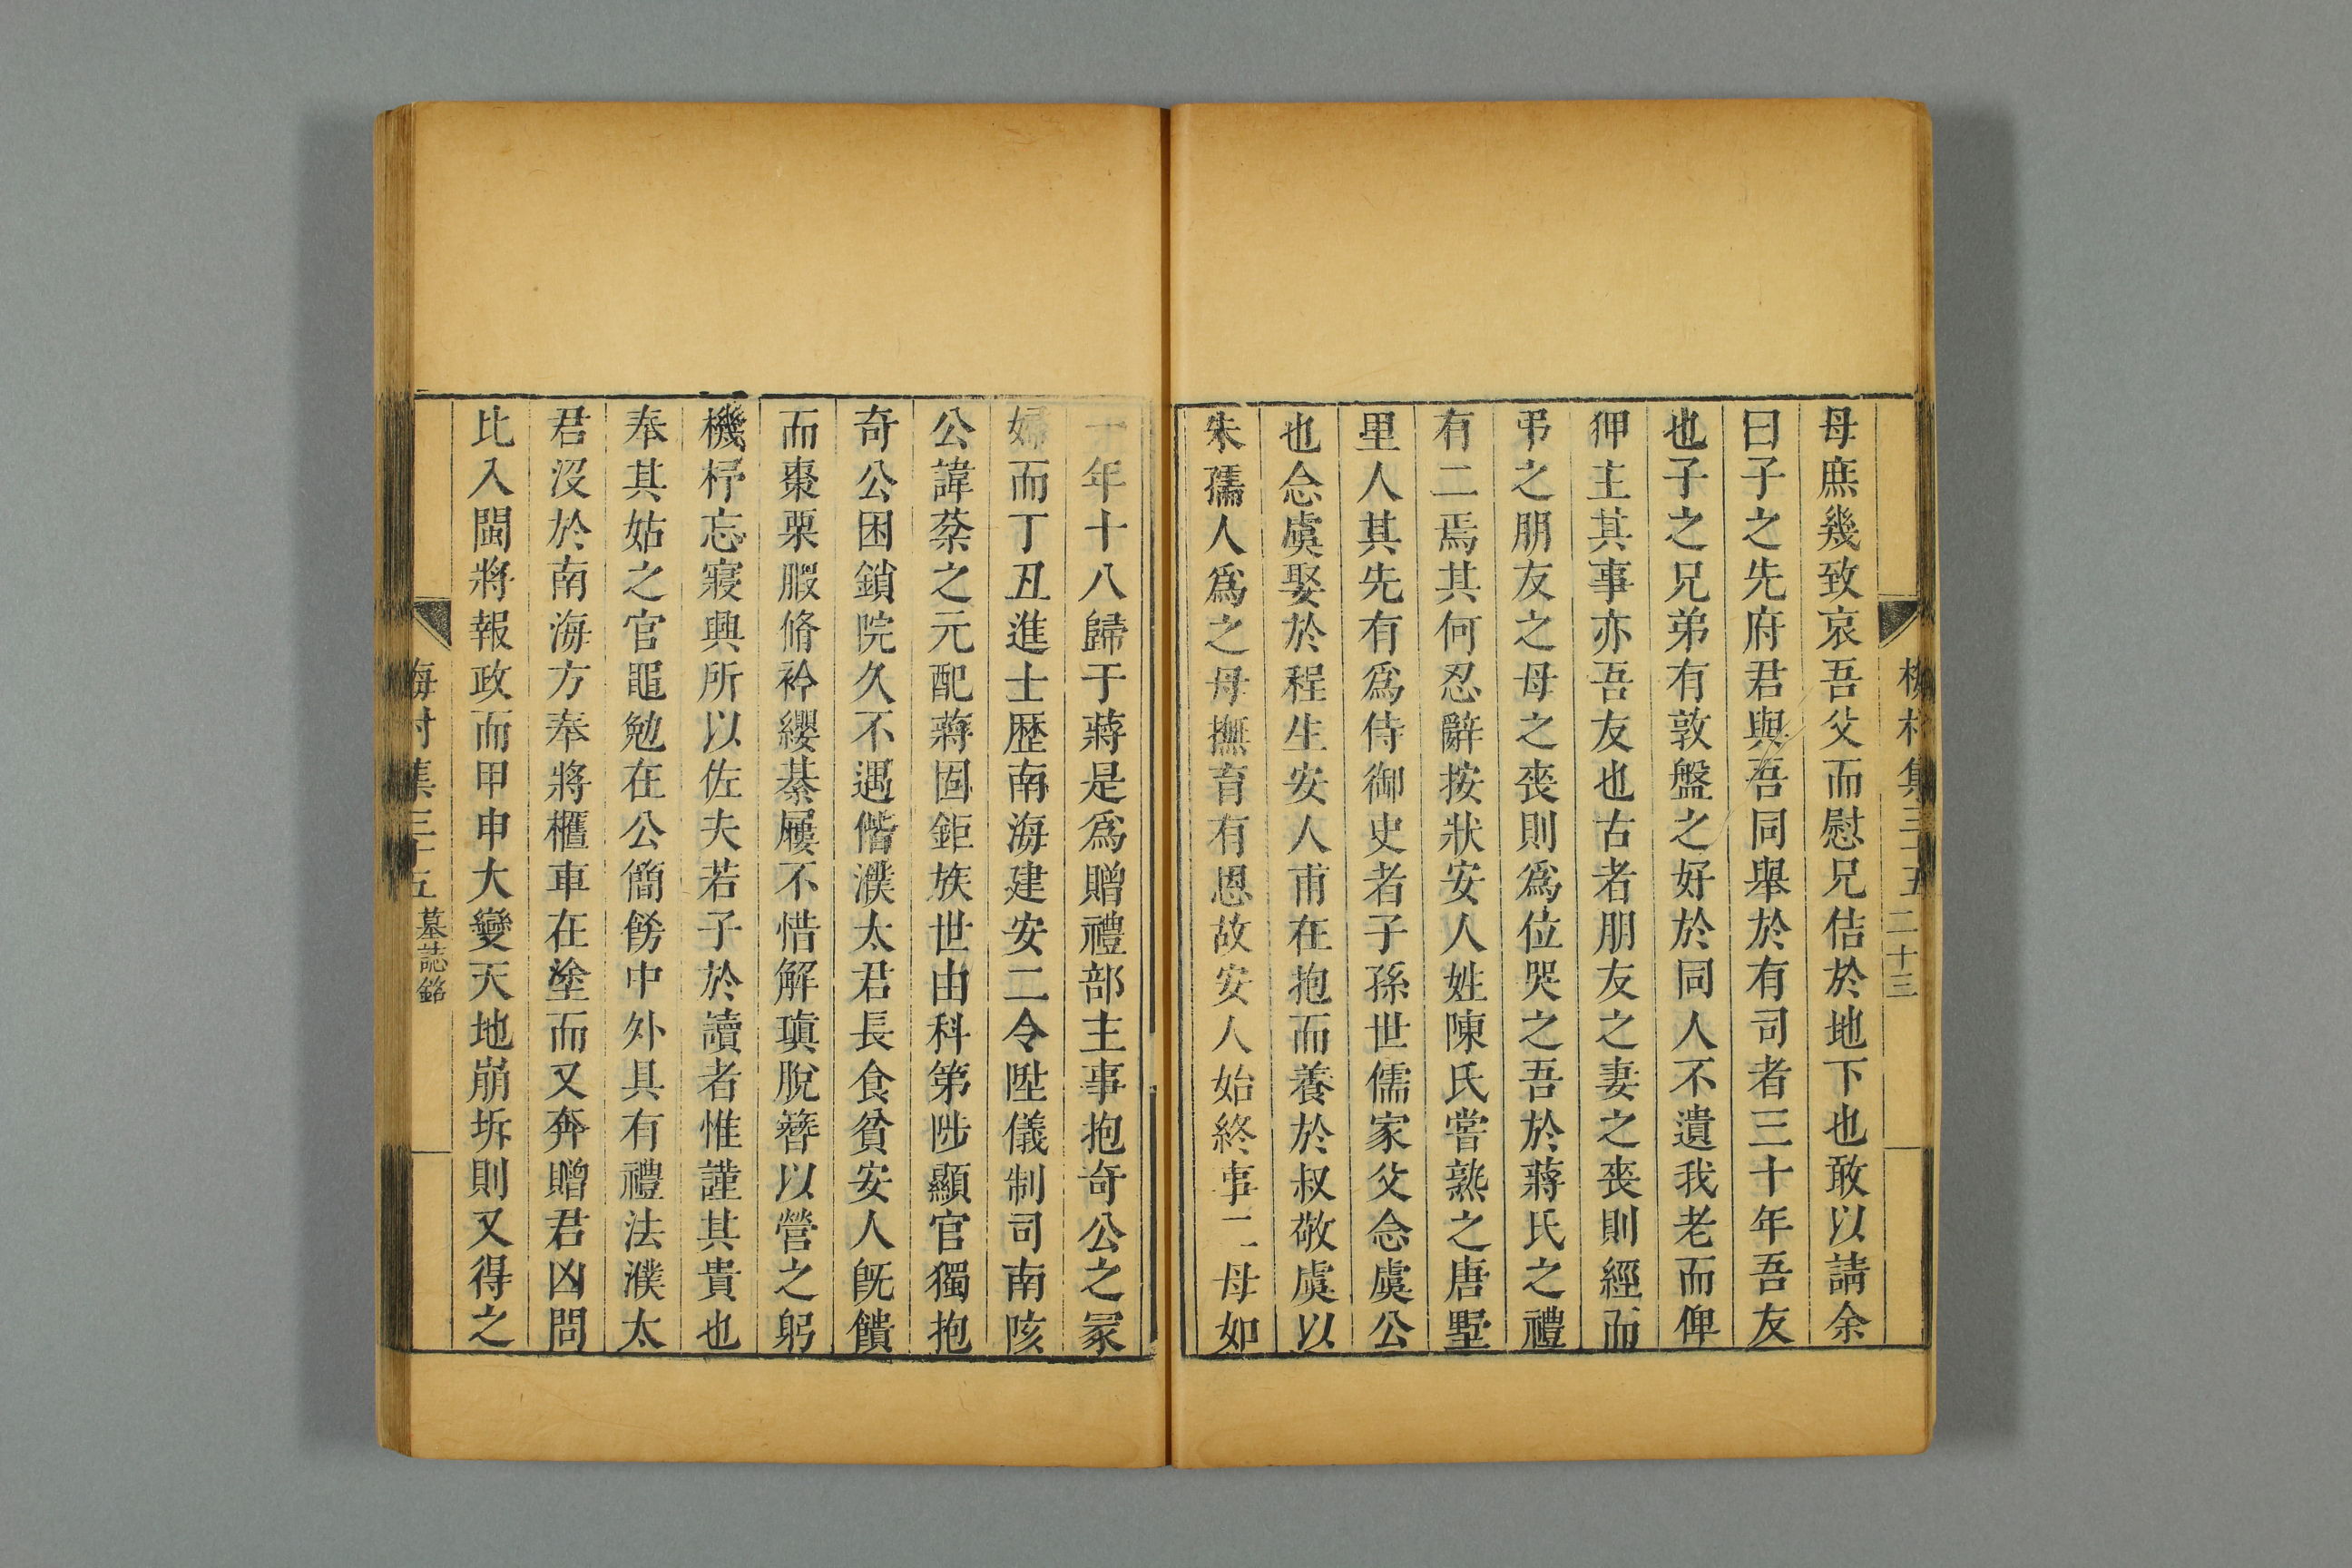 梅村集三十五 二十三
母庶幾致哀吾父而慰兄佶於地下也敢以請余
曰子之先府君與吾同舉於有司者三十年吾友
也子之兄弟有敦盤之好於同人不遺我老而俾
狎主其事亦吾友也古者朋友之妻之喪則經而
弔之朋友之母之喪則爲位哭之吾於蔣氏之禮
有二焉其何忍辭按狀安人姓陳氏嘗熟之唐墅
里人其先有爲侍御史者子孫世儒家父念虞公
也念虞娶於程生安人甫在抱而養於叔敬虞以
朱孺人爲之母撫育有恩故安人始終事二母如
一年十八歸于蔣是爲贈禮部主事抱奇公之冢
婦而丁丑進士歷南海建安二令陞儀制司南陔
公諱棻之元配蔣固鉅族世由科第陟顯官獨抱
奇公困鎖院久不遇偕濮太君長食貧安人旣饋
而棗栗腶脩衿纓綦屨不惜解瑱脫簪以營之躬
機杼忘寢興所以佐夫若子於讀者惟謹其貴也
奉其姑之官黽勉在公簡飭中外具有禮法濮太
君沒於南海方奉將櫬車在塗而又奔贈君凶問
比入閩將報政而甲申大變天地崩坼則又得之
梅村集三十五 墓誌銘